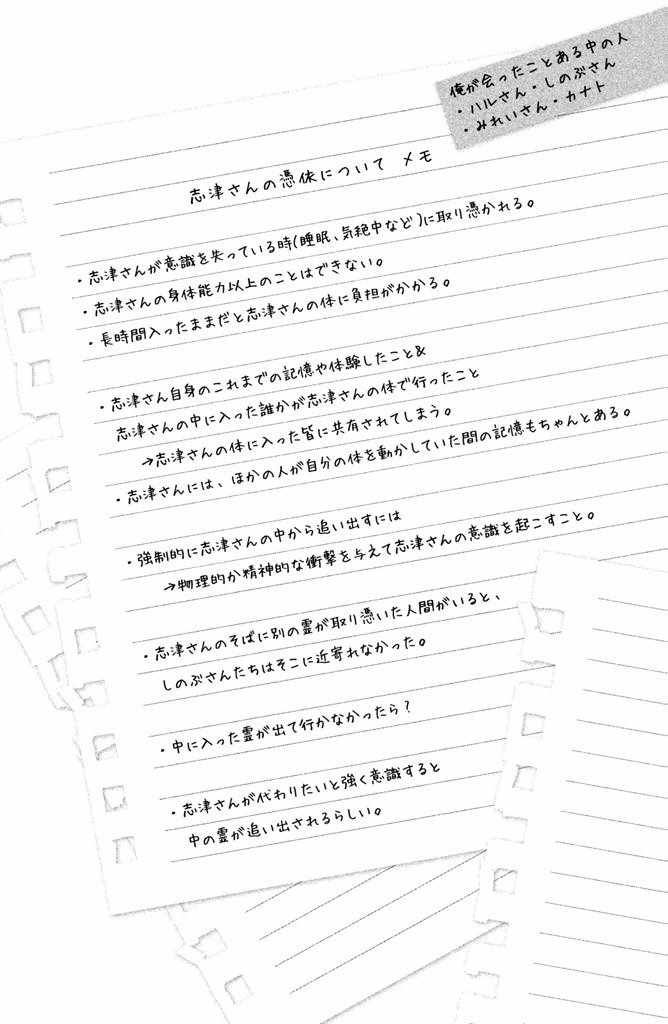 俺が会ったことある中の人
・ハルさん・しのぶさん
・みれいさん・カナト
志津さんの憑依について メモ
・志津さんが意識を失っている時(睡眠、気絶中など)に取り憑かれる。
・志津さんの身体能力以上のことはできない。
・長時間入ったままだと志津さんの体に負担がかかる。
・志津さん自身のこれまでの記憶や体験したこと&
志津さんの中に入った誰かが志津さんの体で行ったこと
→志津さんの体に入った皆に共有されてしまう。
・志津さんには、ほかの人が自分の体を動かしていた間の記憶もちゃんとある。
・強制的に志津さんの中から追い出すには
→物理的か精神的な衝撃を与えて志津さんの意識を起こすこと。
・志津さんのそばに別の霊が取り憑いた人間がいると、
しのぶさんたちはそこに近寄れなかった。
・中に入った霊が出て行かなかったら?
・志津さんが代わりたいと強く意識すると
中の霊が追い出されるらしい。